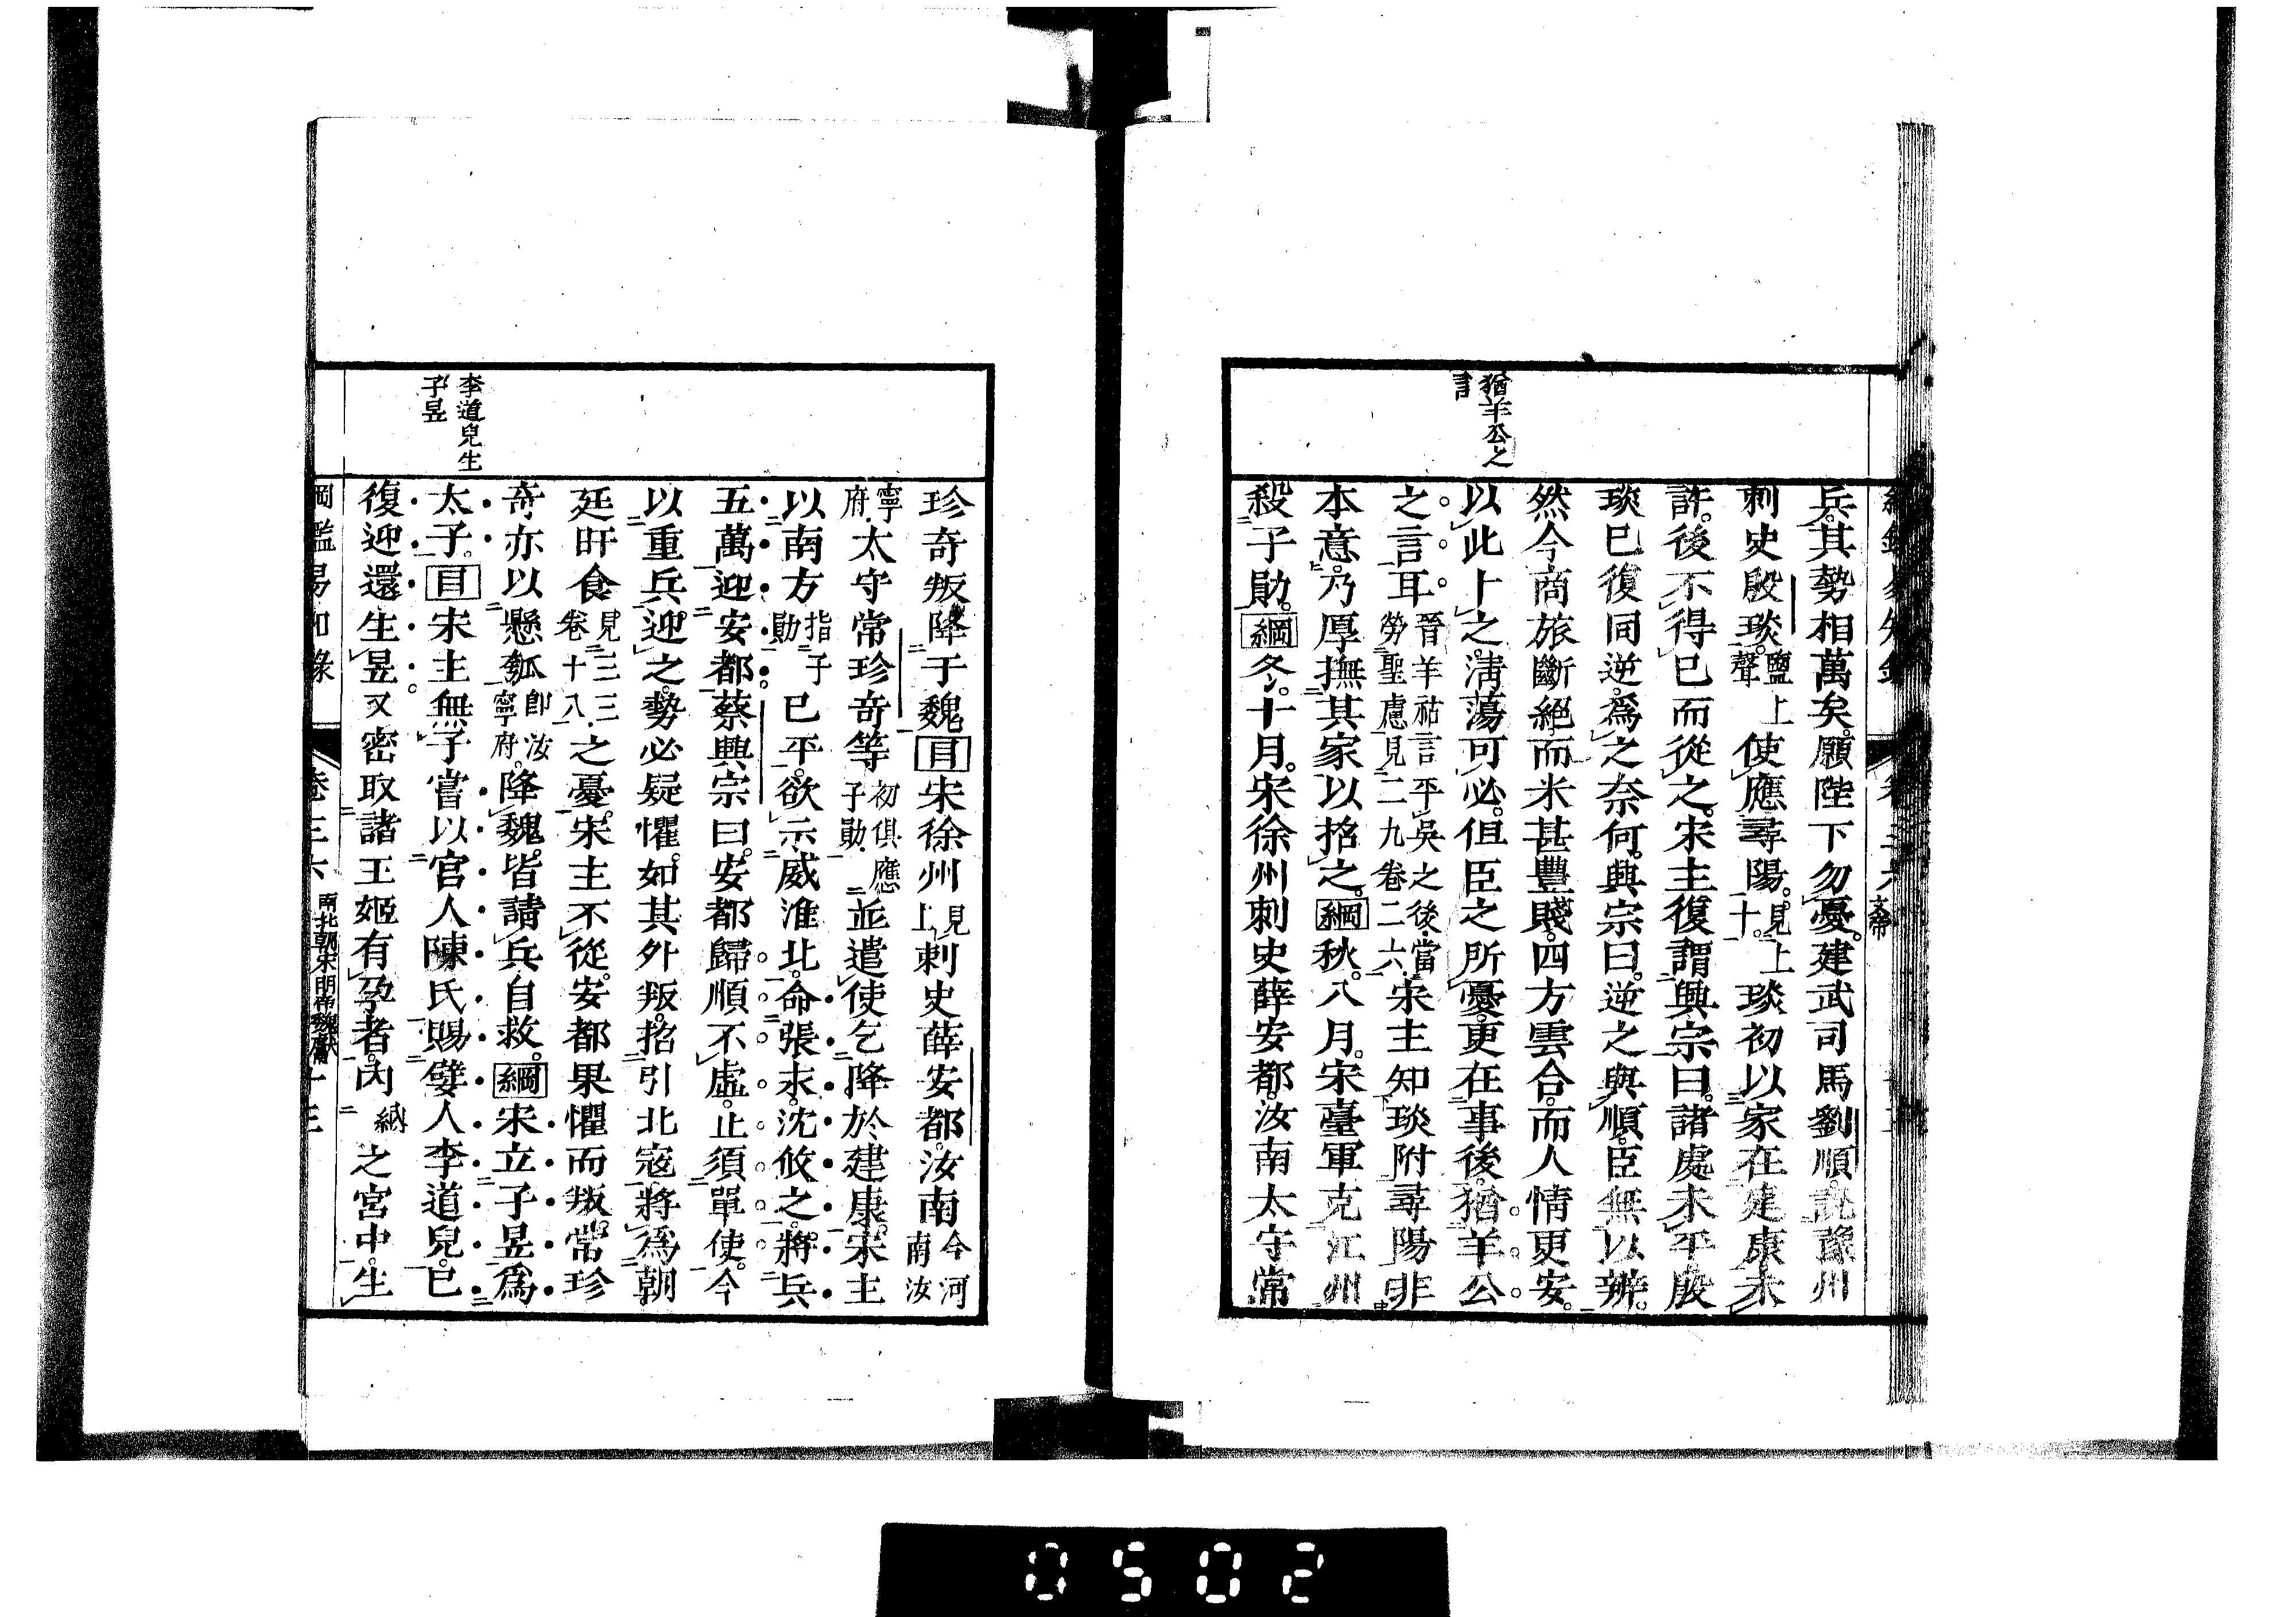 猶羊公之
言
兵。其勢相萬矣。願陛下勿憂。建武司馬劉順。說豫州
刺史殷琰。鹽上聲使應尋陽。見上十。琰初以家在建康。未
許。後不得已而從之。宋主復謂興宗曰。諸處未平。殷
琰已復同逆。爲之奈何。興宗曰。逆之與順。臣無以辨。
然今商旅斷絕。而米甚豐賤。四方雲合。而人情更安。
以此卜之。清蕩可必。但臣之所憂。更在事後。猶羊公
之言耳。晉羊祜言平吳之後。當勞聖慮見二九卷二六。宋主知琰附尋陽非
本意。乃厚撫其家以招之。綱秋。八月。宋臺軍克江州
殺子勛。綱冬。十月。宋徐州刺史薛安都。汝南太守常
李道兒生
子昱
珍奇叛降于魏目宋徐州見上刺史薛安都。汝南今河南汝
寧府。太守常珍奇等初俱應子勛。並遣使乞降於建康。宋主
以南方指子勛已平。欲示威淮北。命張永。沈攸之。將兵
五萬迎安都。蔡興宗曰。安都歸順不虛。止須單使。今
以重兵迎之。勢必疑懼。如其外叛。招引北寇。將爲朝
廷旰食見三三卷十八。之憂。宋主不從。安都果懼而叛。常珍
奇亦以懸瓠卽汝寧府。降魏。皆請兵自救。綱宋立子昱爲
太子。目宋主無子。嘗以宮人陳氏賜嬖人李道兒。已
復迎還。生昱。又密取諸王姬有孕者。內納之宮中。生
綱鑑易知錄 卷三六 南北朝宋明帝魏獻 十三